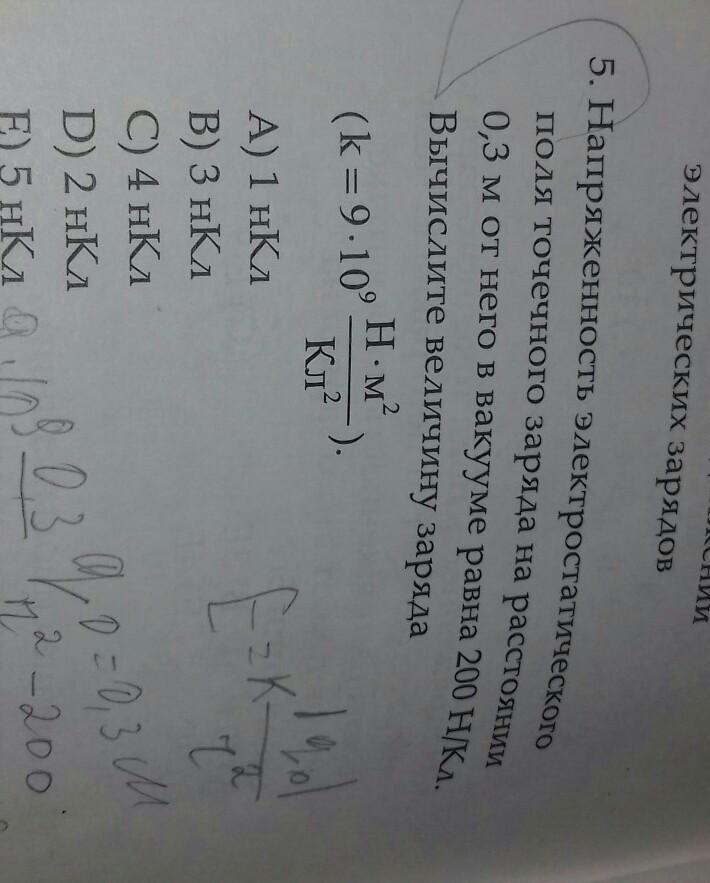 электрических зарядов
5. Напряженность электростатического
поля точечного заряда на расстоянии
0,3 м от него в вакууме равна 200 Н/Кл.
Вычислите величину заряда
(k = 9·10⁹ Н·м²/Кл²).
A) 1 нКл
B) 3 нКл
C) 4 нКл
D) 2 нКл
E) 5 нКл
E = k |q₀|/r²
q₀ = 0,3 м
9·10⁹ 0,3
r² - 200